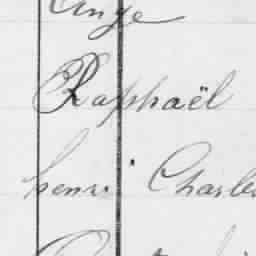 Ange
Raphaël
henri Charles